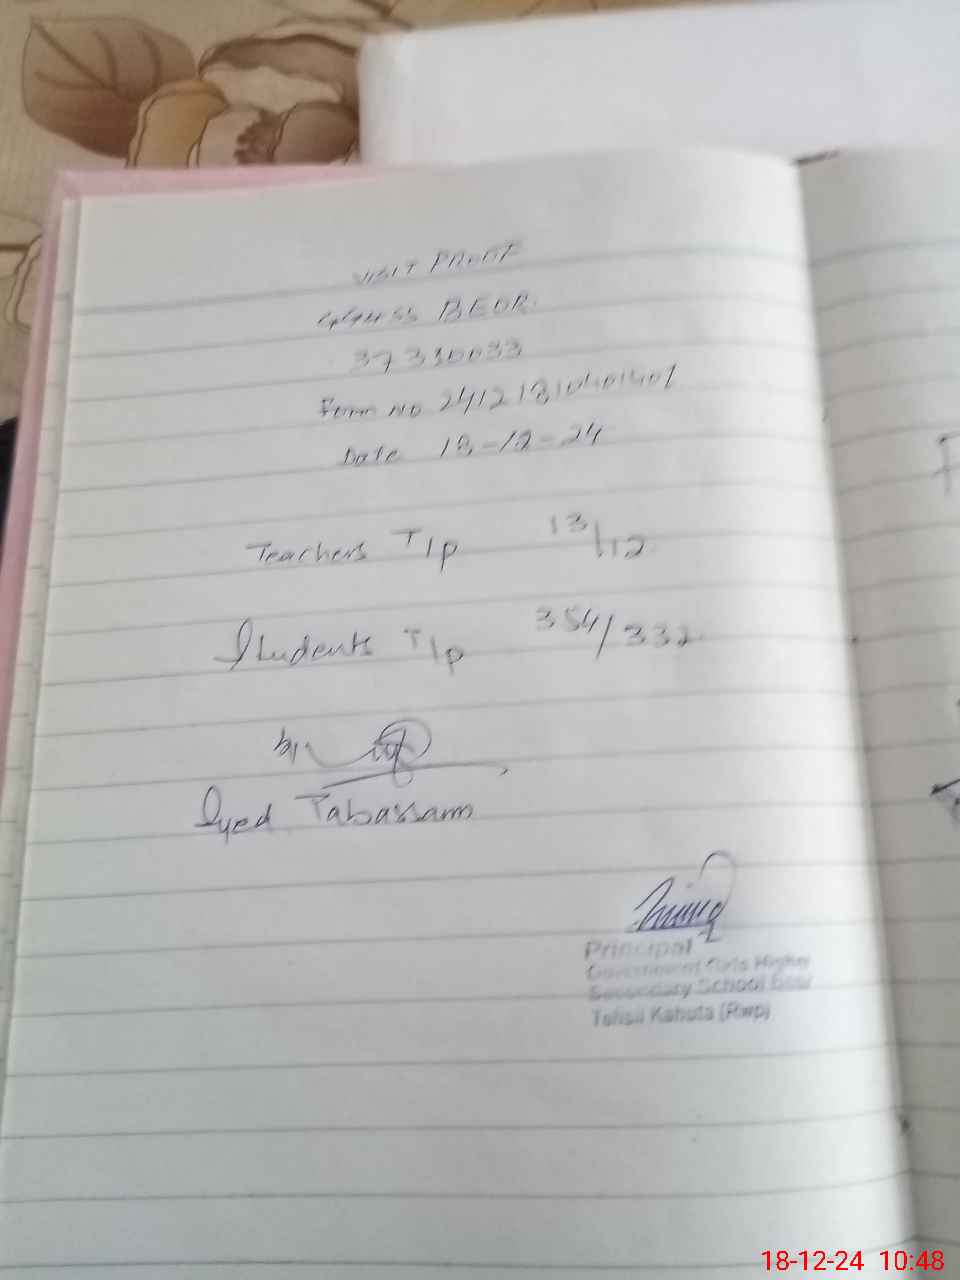 VISIT PROOF
GGHSS BEOR.
37330033
Form No 24121810401401
Date 18-12-24
Teachers T/p 13/12
Students T/p 354/332
by
Syed Tabassam
Principal
Government Girls Higher
Secondary School Beor
Tehsil Kahuta (Rwp)
18-12-24 10:48